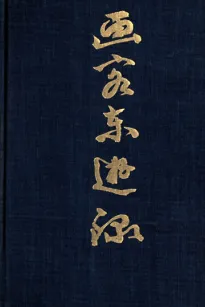 画家东游录